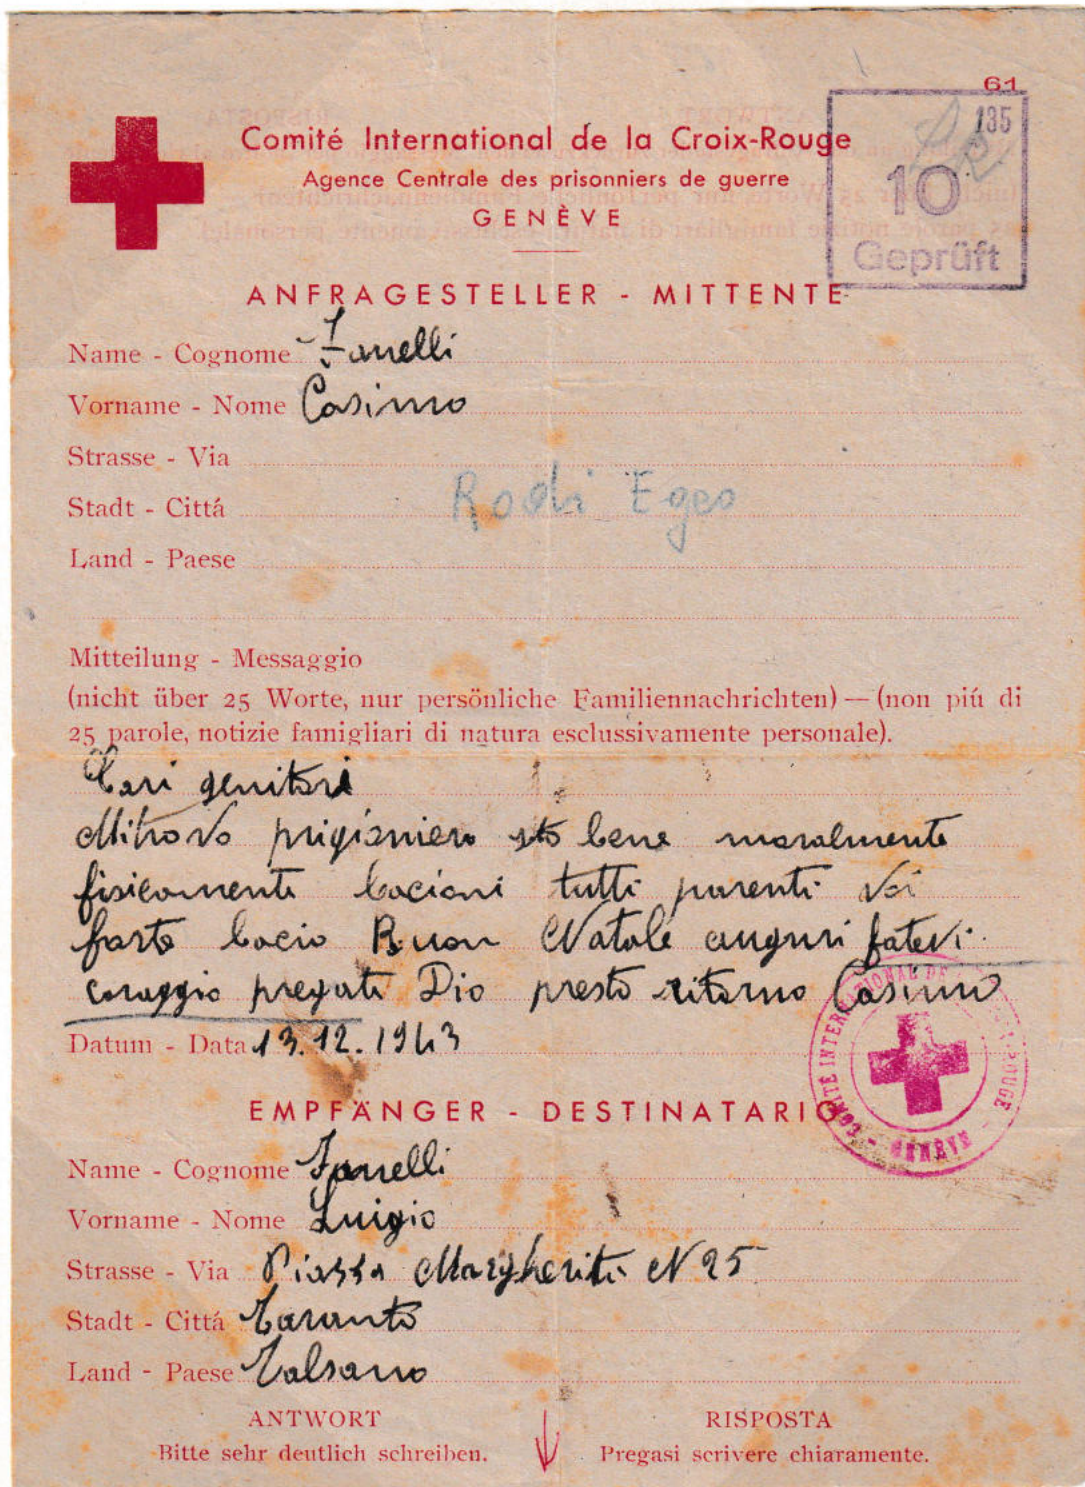 61
135
10
Geprüft
Comité International de la Croix-Rouge
Agence Centrale des prisonniers de guerre
GENÈVE
ANFRAGESTELLER - MITTENTE
Name - Cognome Fanelli
Vorname - Nome Cosimo
Strasse - Via
Stadt - Cittá Rodi Egeo
Land - Paese
Mitteilung - Messaggio
(nicht über 25 Worte, nur persönliche Familiennachrichten) — (non piú di
25 parole, notizie famigliari di natura esclussivamente personale).
Cari genitori
Mitrovo prigioniero sto bene moralmente
fisicamente baciani tutti parenti voi
forte bacio Buon Natale auguri fatevi
coraggio pregate Dio presto ritorno Cosimo
Datum - Data 13.12.1943
COMITÉ INTERNATIONAL DE LA CROIX-ROUGE - GENÈVE -
EMPFÄNGER - DESTINATARIO
Name - Cognome Fanelli
Vorname - Nome Luigio
Strasse - Via Piazza Margherita N 25
Stadt - Cittá Taranto
Land - Paese Talsano
ANTWORT RISPOSTA
Bitte sehr deutlich schreiben. Pregasi scrivere chiaramente.